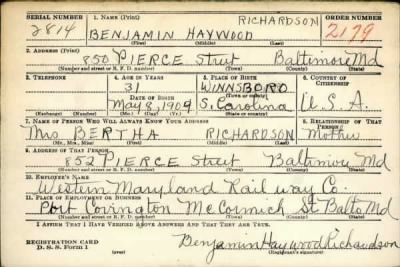 SERIAL NUMBER 1. NAME (Print) RICHARDSON ORDER NUMBER
2814 BENJAMIN HAYWOOD 2179
(First) (Middle) (Last)
2. ADDRESS (Print)
850 PIERCE Street Baltimore Md
(Number and street or R. F. D. number) (Town) (County) (State)
3. TELEPHONE 4. AGE IN YEARS 5. PLACE OF BIRTH 6. COUNTRY OF CITIZENSHIP
31 WINNSBORO
(Town or county)
DATE OF BIRTH
May 8, 1909 S. Carolina U.S.A.
(Exchange) (Number) (Mo.) (Day) (Yr.) (State or country)
7. NAME OF PERSON WHO WILL ALWAYS KNOW YOUR ADDRESS 8. RELATIONSHIP OF THAT PERSON
Mrs BERTHA RICHARDSON Mother
(Mr., Mrs., Miss) (First) (Middle) (Last)
9. ADDRESS OF THAT PERSON
852 PIERCE Street Baltimore Md
(Number and street or R. F. D. number) (Town) (County) (State)
10. EMPLOYER'S NAME
Western Maryland Railway Co.
11. PLACE OF EMPLOYMENT OR BUSINESS
Port Covington McCormich St Balto Md
(Number and street or R. F. D. number) (Town) (County) (State)
I AFFIRM THAT I HAVE VERIFIED ABOVE ANSWERS AND THAT THEY ARE TRUE.
REGISTRATION CARD
D. S. S. Form 1 (over) Benjamin Haywood Richardson
(Registrant's signature)